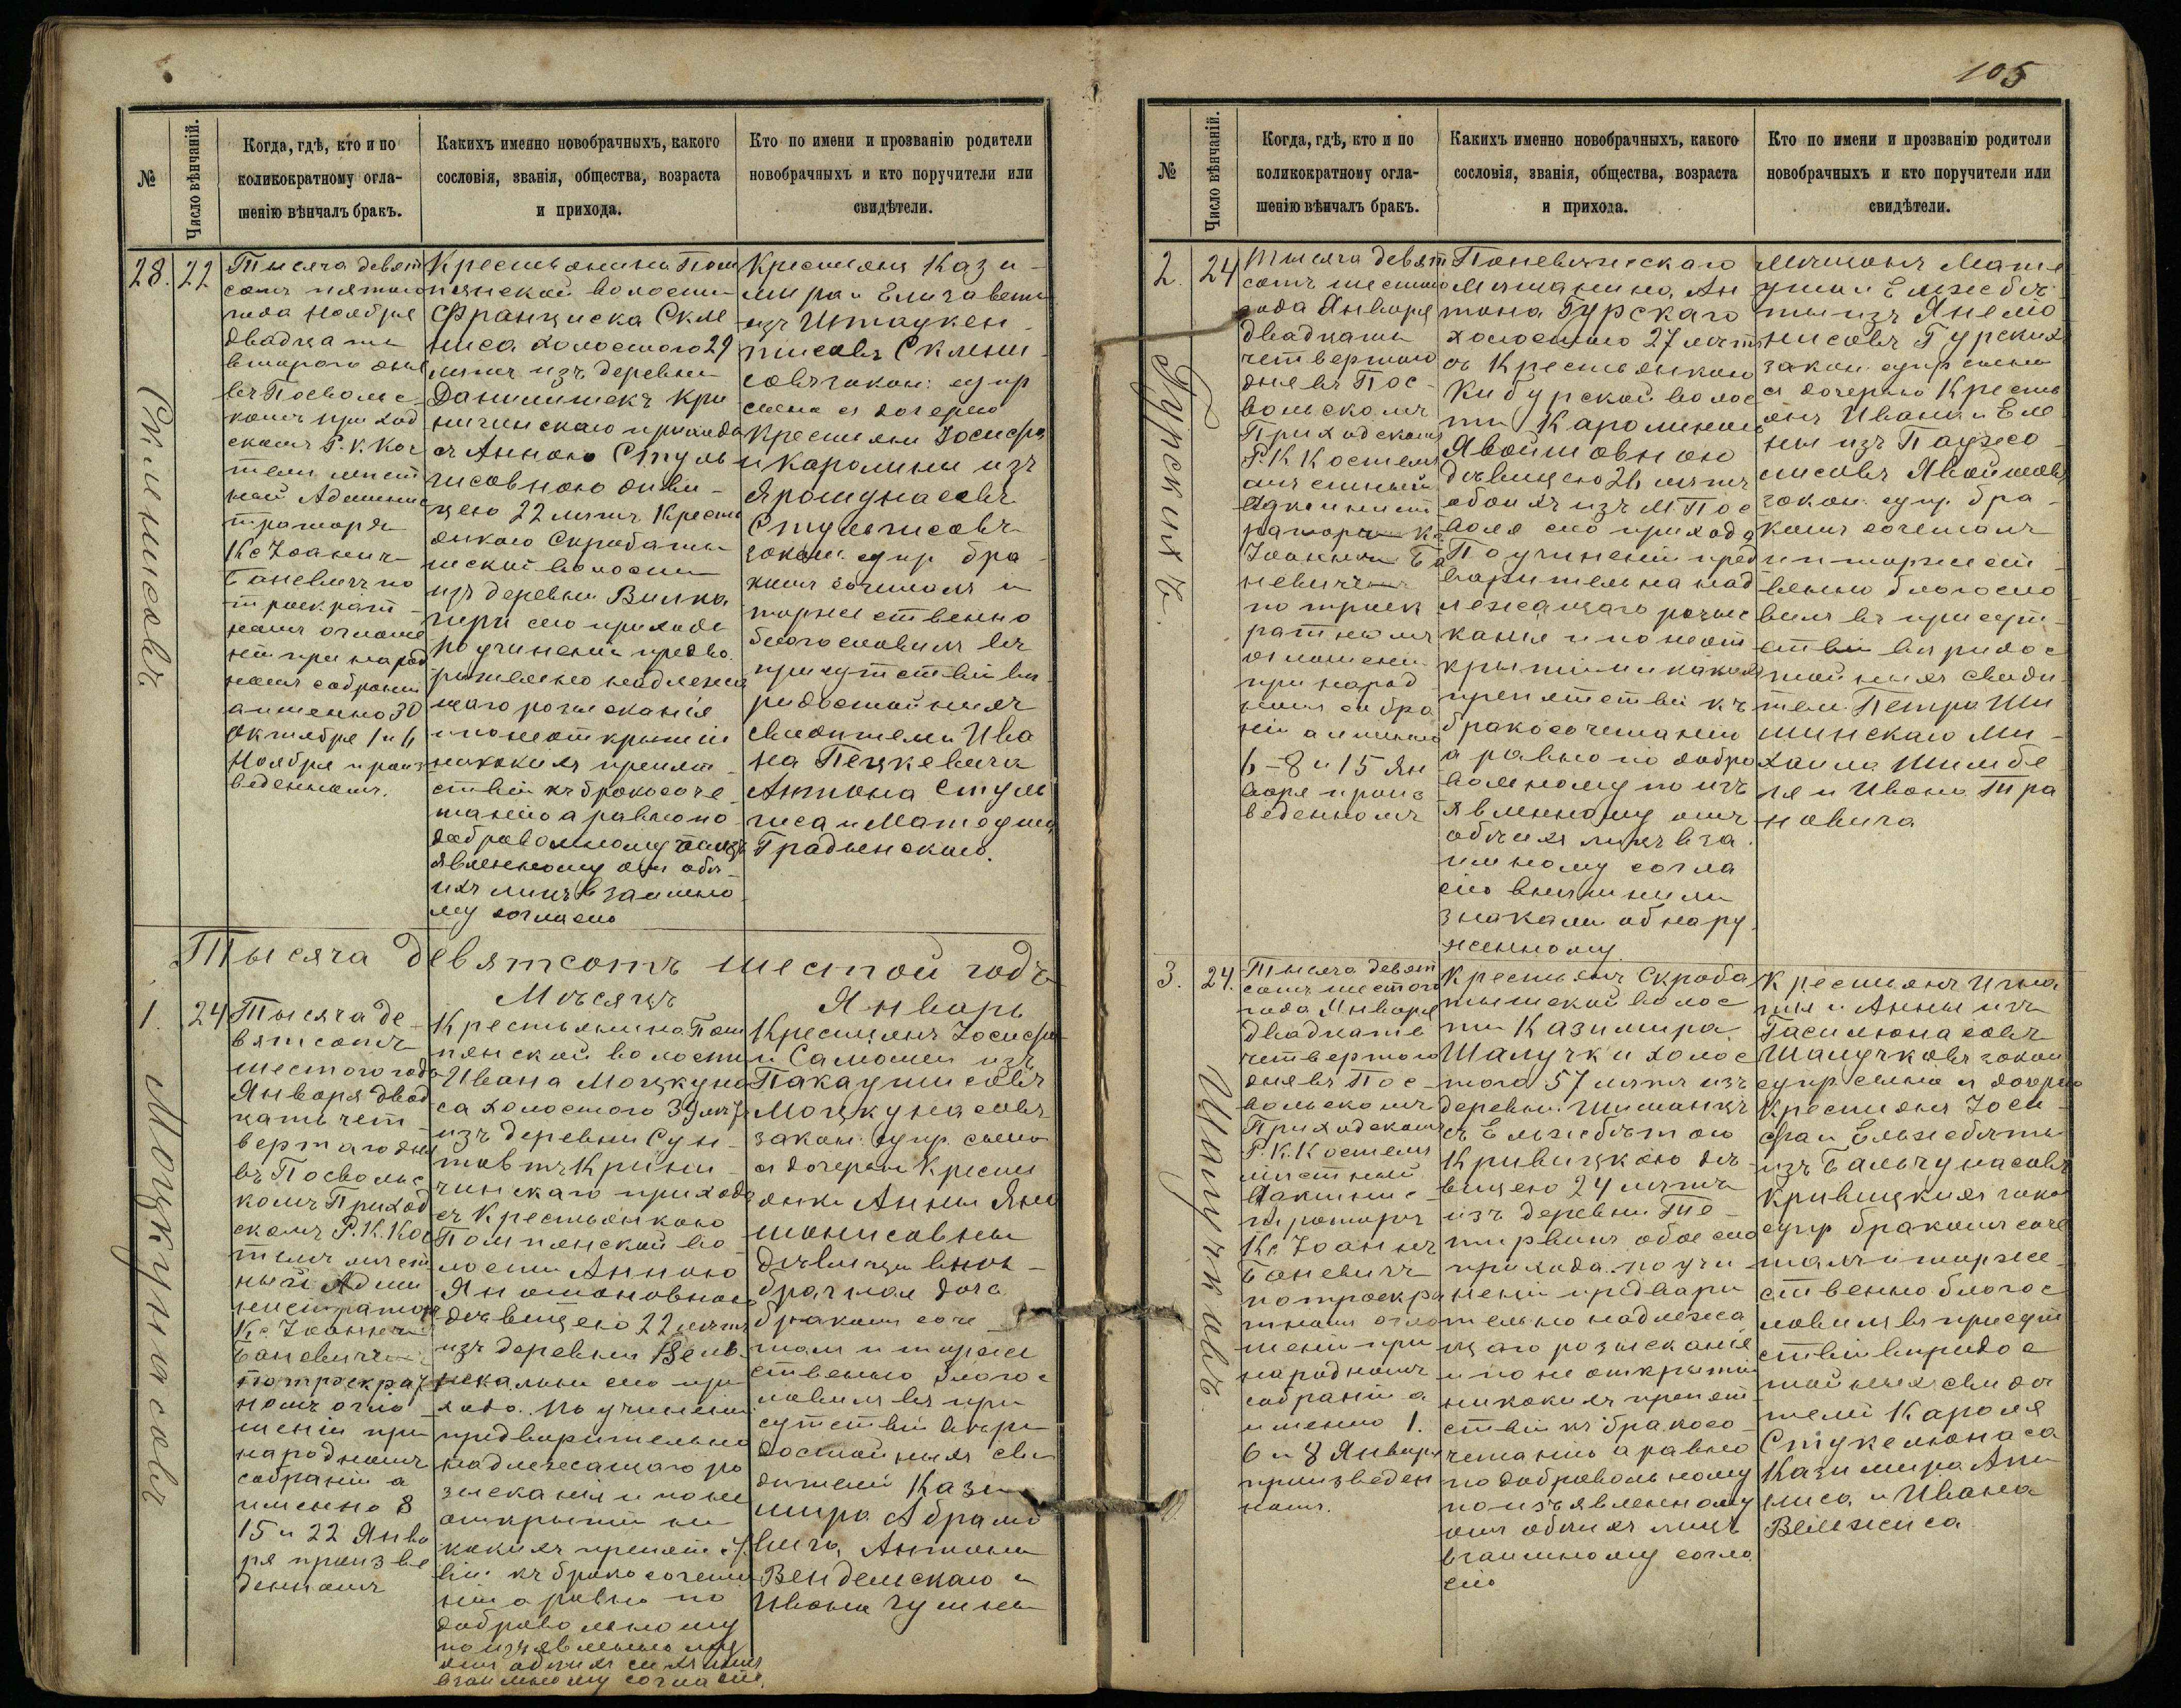 105
№
Число вѣнчаній.
Когда, гдѣ, кто и по
коликократному огла-
шенію вѣнчалъ бракъ.
Какихъ именно новобрачныхъ, какого
сословія, званія, общества, возраста
и прихода.
Кто по имени и прозванію родители
новобрачныхъ и кто поручители или
свидѣтели.
28.
22
Тысяча девят
сотъ пятого
года Ноября
двадцать
второго дня
въ Посвольс-
комъ приход
скомъ Р. К. Кос
телѣ мѣст
ный Админис
траторъ
Кс Іоаннъ
Баневичъ по
троекрат-
номъ оглаше
ніи при народ
номъ собраніи
а именно 30
Октября 1 и 6
Ноября произ
веденномъ.
Крестьянина Пом
пянской волости
Франциска Скле
ниса холостого 29
лѣтъ изъ деревни
Данилишекъ Кри
ничинскаго прихода
съ Анною Стуль
гисовною дѣви-
цею 22 лѣтъ Кресть
янкою Скроботы
шской волости
изъ деревни
сего прихода
По учиненіи предва
рительно надлежа
щаго розысканія
и по неоткрытіи
никакихъ препят
ствій къ бракосоче
танію а равно по
добровольному по изъ
явленному отъ обо
ихъ лицъ взаимно
му согласію
Крестьянъ Кази-
мира и Елизаветы
изъ
Склени
совъ закон: супр
сына съ дочерью
Крестьянъ Іосифа
и Каролины изъ
Ярошунасовъ
Стульгисовъ
закон. супр. бра-
комъ сочеталъ и
торжественно
благословилъ въ
присутствіи вѣ-
ридостойныхъ
свидѣтелей Ива
на Пецкевича
Антона Стуль
гиса и Матеуша
Градынскаго.
Скленисовъ
Тысяча девятсотъ шестой годъ
Мѣсяцъ Январь
1.
24
Тысяча де-
вятсотъ
шестого года
Января двад
цать чет-
вертаго дня
въ Посвольс
комъ Приход
скомъ Р. К. Кос
телѣ мѣст
ный Адми
нистраторъ
Кс Іоаннъ
Баневичъ
по троекрат
номъ огло
шеніи при
народномъ
собраніи а
именно 8
15 и 22 Янва
ря произве
денномъ
Крестьянина Пом
пянской волости
Ивана Моцкуна
са холостого 39 лѣт
изъ деревни Сун-
товтъ Крини-
чинскаго прихода
съ Крестьянкою
Помпянской во-
лости Анною
Яношоновною
дѣвицею 22 лѣтъ
изъ деревни
сего при
хода. По учиненіи
предварительно
надлежащаго ро
зысканія и по не
открытіи ни
какихъ препят
вій къ бракосочета
нію а равно по
добровольному
по изъявленно му
отъ обоихъ сихъ лицъ
взаимному согласію.
Крестьянъ Іосифа
и Саломеи изъ
Пакаушисовъ
Моцкунасовъ
закон: супр. сына
съ дочерью Крест
янки Анны Яно
шонисовны
дѣвицы внѣ-
брачная доч.
бракомъ соче-
талъ и торже
ственно благос
ловилъ въ при
сутствіи вѣри
достойныхъ сви
дѣтелей Кази
мира Абрамо
вича, Антона
Вендельскаго и
Ивана
Моцкунасовъ
№
Число вѣнчаній.
Когда, гдѣ, кто и по
коликократному огла-
шенію вѣнчалъ бракъ.
Какихъ именно новобрачныхъ, какого
сословія, званія, общества, возраста
и прихода.
Кто по имени и прозванію родители
новобрачныхъ и кто поручители или
свидѣтели.
2.
24
Тысяча девят
сотъ шестого
года Января
двадцать
четвертого
дня въ Пос-
вольскомъ
Приходскомъ
Р. К Костелѣ
мѣстный
Админист
раторъ Кс
Іоаннъ Ба
невичъ
по троек
ратномъ
оглошеніи
при народ
номъ собра
ніи а именно
6 - 8 и 15 Ян
воря произ
веденномъ
Поневѣжскаго
Мѣщанина Ан
тона Гурскаго
холостого 27 лѣтъ
съ Крестьянкою
Кибурской волос
ти Каролиною
Явойшовною
дѣвицею 26 лѣтъ
обоихъ изъ М Пос
воля сего прихода
По учиненіи пред
варительна над
лежащаго розыс
канія и по неот
крытіи никакихъ
препятствій къ
бракосочетанію
а равно по добро
вольному по изъ
явленному отъ
обѣихъ лицъ вза
имному согла
сію внѣшними
знаками обнару
женному.
Мѣщанъ Мате
уша и Ельжбѣ
ты изъ Янело
нисовъ Гурскихъ
закон. супр сына
съ дочерью Кресть
янъ Ивана и Еле
ны изъ Паужо-
лисовъ Явойшовъ
закон. супр. бра-
комъ сочеталъ
и торжест-
венно благосло
вилъ въ присут-
ствіи вѣридос
тойныхъ свидѣ
телей Петра Ши
шинскаго Ми-
хаила Шимбе
ля и Ивана Тра
новича
Гурскихъ.
3.
24.
Тысяча девят
сотъ шестого
года Января
двадцать
четвертого
дня въ Пос-
вольскомъ
Приходскомъ
Р. К. Костелѣ
мѣстный
Админис-
траторъ
Кс Іоаннъ
Баневичъ
по троекра
тномъ огло
шеніи при
народномъ
собраніи а
именно 1.
6 и 8 Января
произведен
номъ.
Крестьянъ Скроба
тышской волос
ти Казимира
Шалучки холос
того 57 лѣтъ изъ
деревни Шиманцъ
съ Ельжбѣтою
Кривицкою дѣ-
вицею 24 лѣтъ
изъ деревни Те-
тирвинъ обое сего
прихода. по учи
неніи предвари
тельно надлежа
щаго розысканія
и по не открытіи
никакихъ препят
ствій къ бракосо-
четанію а равно
по добровольному
по изъявленному
отъ обоихъ лицъ
взаимному согло
сію
Крестьянъ Игна
тія и Анны изъ
Гасилюнасовъ
Шалучковъ закон
супр сына съ дочерью
Крестьянъ Іоси-
фа и Ельжбѣты
изъ Бальчунасовъ
Кривицкихъ закон
супр бракомъ соче
талъ и торже-
ственно благос
ловилъ въ присут
ствіи вѣридос
тойныхъ свидѣ
телей Кароля
Стукелюнаса
Казимира Апи
лиса и Ивана
Велжиса
Шалучковъ.